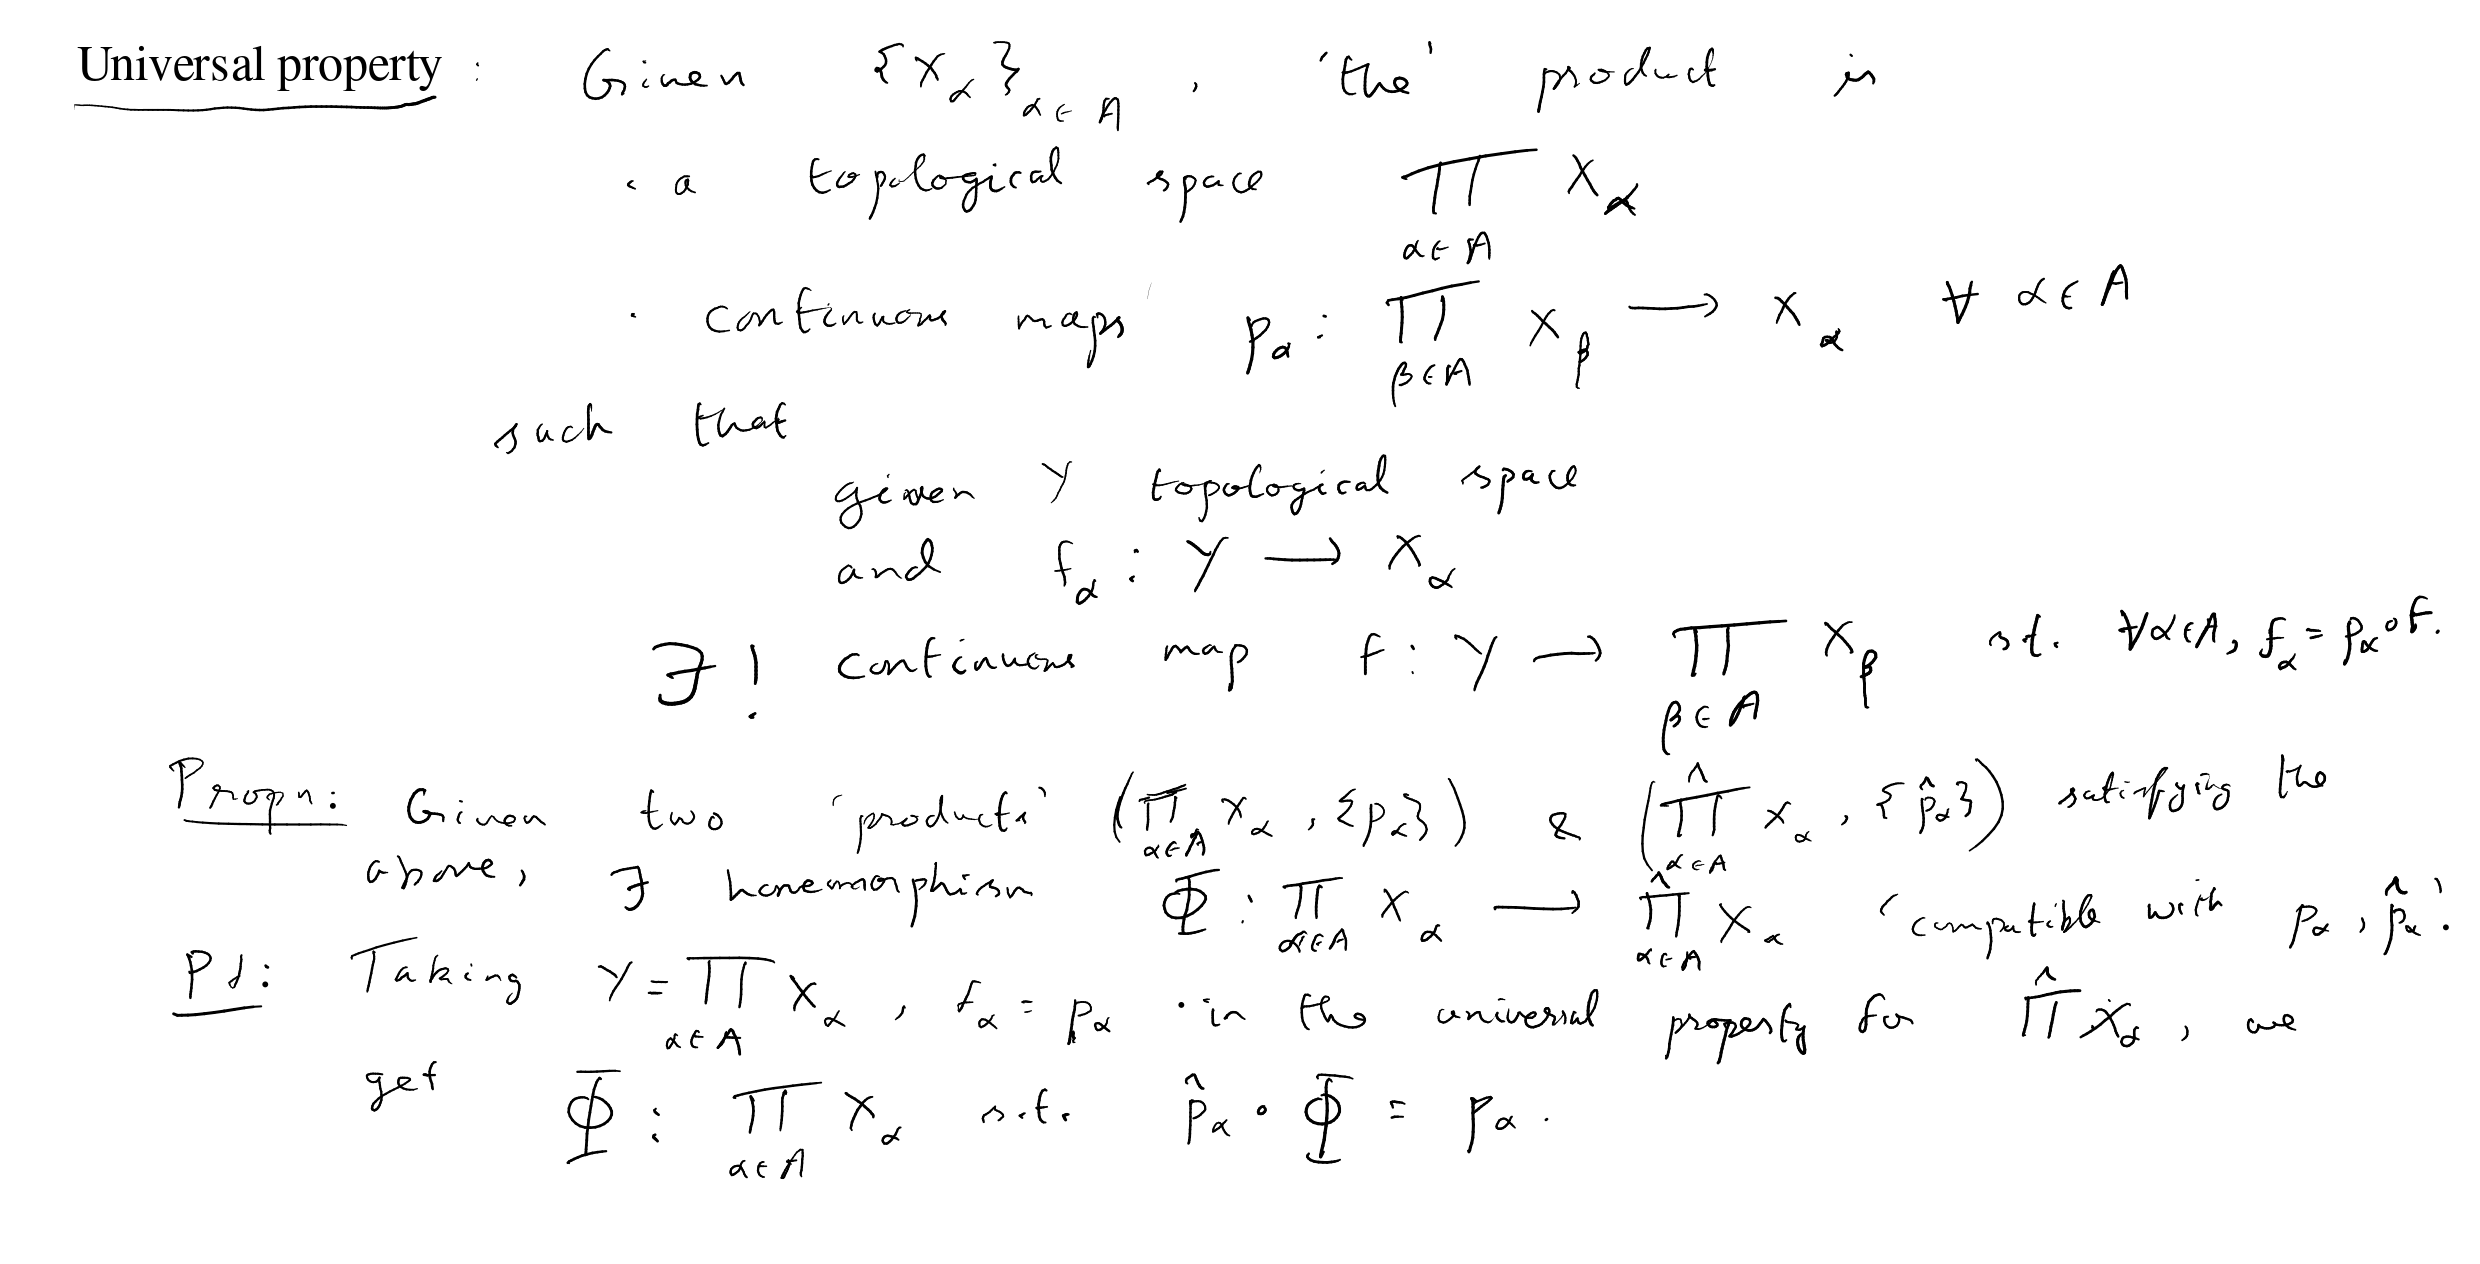 Universal property : Given {X_α}_{α∈A} , 'the' product is
· a topological space ∏_{α∈A} X_α
· continuous maps p_α : ∏_{β∈A} X_β → X_α ∀ α∈A
such that
given Y topological space
and f_α : Y → X_α
∃ ! continuous map f : Y → ∏_{β∈A} X_β s.t. ∀α∈A, f_α = p_α∘f.
Propn: Given two 'products' (∏_{α∈A} X_α , {p_α}) & (∏̂_{α∈A} X_α , {p̂_α}) satisfying the
above, ∃ homeomorphism Φ : ∏_{α∈A} X_α → ∏̂_{α∈A} X_α 'compatible with p_α , p̂_α'.
Pf: Taking Y = ∏_{α∈A} X_α , f_α = p_α · in the universal property for ∏̂ X_α , we
get Φ : ∏_{α∈A} X_α s.t. p̂_α ∘ Φ = p_α .